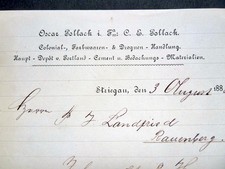 Oscar Pollack i. Fa. C. E. Pollack.
Colonial-, Farbwaaren- & Droguen-Handlung.
Haupt-Depôt v. Portland-Cement u. Bedachungs-Materialien.
Striegau, den 3 August 188
Herrn P J Landfried
Rauenberg.